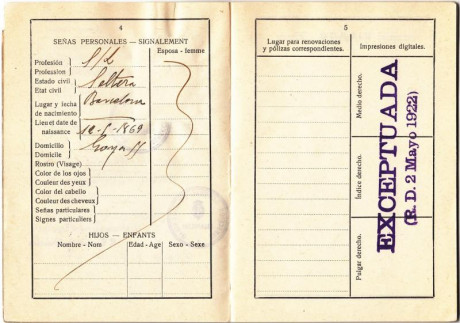 4
SEÑAS PERSONALES — SIGNALEMENT
Esposa - femme
Profesión
Profession
S/L
Estado civil
Etat civil
Soltera
Lugar y fecha
de nacimiento
Barcelona
Lieu et date de
naissance
1869
Domicilio
Domicile
Goya
Rostro (Visage)
Color de los ojos
Couleur des yeux
Color del cabello
Couleur des cheveux
Señas particulares
Signes particuliers
HIJOS — ENFANTS
Nombre - Nom
Edad - Age
Sexo - Sexe
5
Lugar para renovaciones
y pólizas correspondientes.
Impresiones digitales.
Medio derecho.
Indice derecho.
Pulgar derecho.
EXCEPTUADA
(R. D. 2 Mayo 1922)